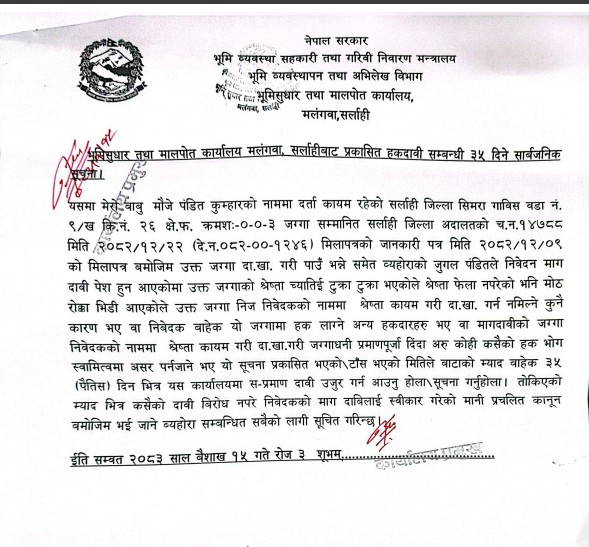 नेपाल सरकार
भूमि व्यवस्था सहकारी तथा गरिवी निवारण मन्त्रालय
भूमि व्यवस्थापन तथा अभिलेख विभाग
भूमिसुधार तथा मालपोत कार्यालय,
मलंगवा,सर्लाही
भूमिसुधार तथा मालपोत कार्यालय मलंगवा, सर्लाहीबाट प्रकासित हकदावी सम्बन्धी ३५ दिने सार्वजनिक
सूचना।
यसमा मेरो बाबु मौजे पंडित कुम्हारको नाममा दर्ता कायम रहेको सर्लाही जिल्ला सिमरा गाविस वडा नं.
९/ख कि.नं. २६ क्षे.फ. क्रमशः-०-०-३ जग्गा सम्मानित सर्लाही जिल्ला अदालतको च.न.१४७८८
मिति २०८२/१२/२२ (दे.न.०८२-००-१२४६) मिलापत्रको जानकारी पत्र मिति २०८२/१२/०९
को मिलापत्र बमोजिम उक्त जग्गा दा.खा. गरी पाउँ भन्ने समेत व्यहोराको जुगल पंडितले निवेदन माग
दावी पेश हुन आएकोमा उक्त जग्गाको श्रेष्ता च्यातिई टुक्रा टुक्रा भएकोले श्रेष्ता फेला नपरेको भनि मोठ
रोक्का भिडी आएकोले उक्त जग्गा निज निवेदकको नाममा श्रेष्ता कायम गरी दा.खा. गर्न नमिल्ने कुनै
कारण भए वा निवेदक बाहेक यो जग्गामा हक लाग्ने अन्य हकदारहरु भए वा मागदावीको जग्गा
निवेदकको नाममा श्रेष्ता कायम गरी दा.खा.गरी जग्गाधनी प्रमाणपूर्जा दिंदा अरु कोही कसैको हक भोग
स्वामित्वमा असर पर्नजाने भए यो सूचना प्रकासित भएको\टाँस भएको मितिले बाटाको म्याद बाहेक ३५
(पैंतिस) दिन भित्र यस कार्यालयमा स-प्रमाण दावी उजुर गर्न आउनु होला\सूचना गर्नुहोला। तोकिएको
म्याद भित्र कसैको दावी बिरोध नपरे निवेदकको माग दाबिलाई स्वीकार गरेको मानी प्रचलित कानून
बमोजिम भई जाने व्यहोरा सम्बन्धित सबैको लागी सूचित गरिन्छ।
ईति सम्बत २०८३ साल बैशाख १५ गते रोज ३ शूभम्..............................
कार्यालय प्रमुख
कार्यालय प्रमुख